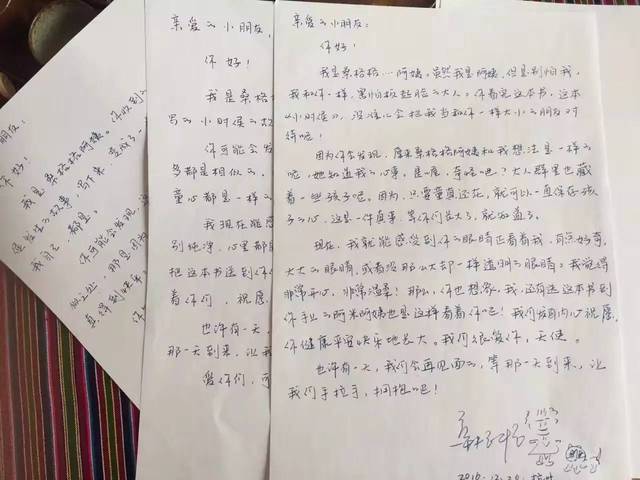 朋友:
你好!
我是桑格格阿姨。你收到
是发生的故事,
我自己,都是
你可能会发现
真得到快乐
亲爱的小朋友,
你好!
我是桑格
写的《小时候》的故
你可能会发
多都是相似的,
童心都是一样的
我现在能感
别纯净,心里都
把这本书送到你
着你们,祝愿
也许有一天,
那一天到来,让我
爱你们,
亲爱的小朋友:
你好!
我是桑格格…阿姨。虽然我是阿姨,但是别怕我,
我和你一样,害怕板起脸的大人。你看完这本书,这本
《小时候》,没准儿会把我当和你一样大的小朋友对
待呢!
因为你会发现,原来桑格格阿姨和我想法是一样的
呢,她知道我的心事,是嘛,奇怪吧?大人群里也藏
着一些孩子呢。因为,只要童真还在,就可以一直保存孩
子的心,这是一件真事,等你们长大了,就知道了。
现在,我就能感受到你的眼睛正看着我,有点好奇,
大大的眼睛,或者没那么大却一样透明的眼睛。我觉得
非常开心,非常温柔!那么,你也想象,我,还有送这本书到
你手上的阿米阿姨也是这样看着你呢!我们发自内心祝愿,
你健康平安快乐地长大。我们很爱你,天使。
也许有一天,我们会再见面的,等那一天到来,让
我们手拉手,拥抱吧!
桑格格